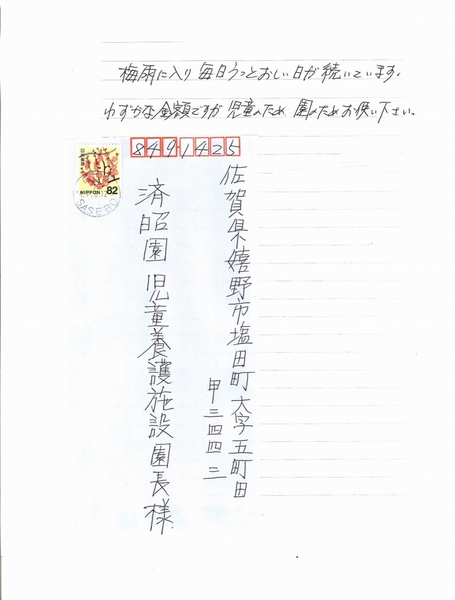 梅雨に入り毎日うっとおしい日が続いています。
わずかな金額ですが児童のため園のためお使い下さい。
8491425
佐賀県嬉野市塩田町大字五町田
甲三四四三
済昭園児童養護施設園長様
NIPPON 82
SASEBO